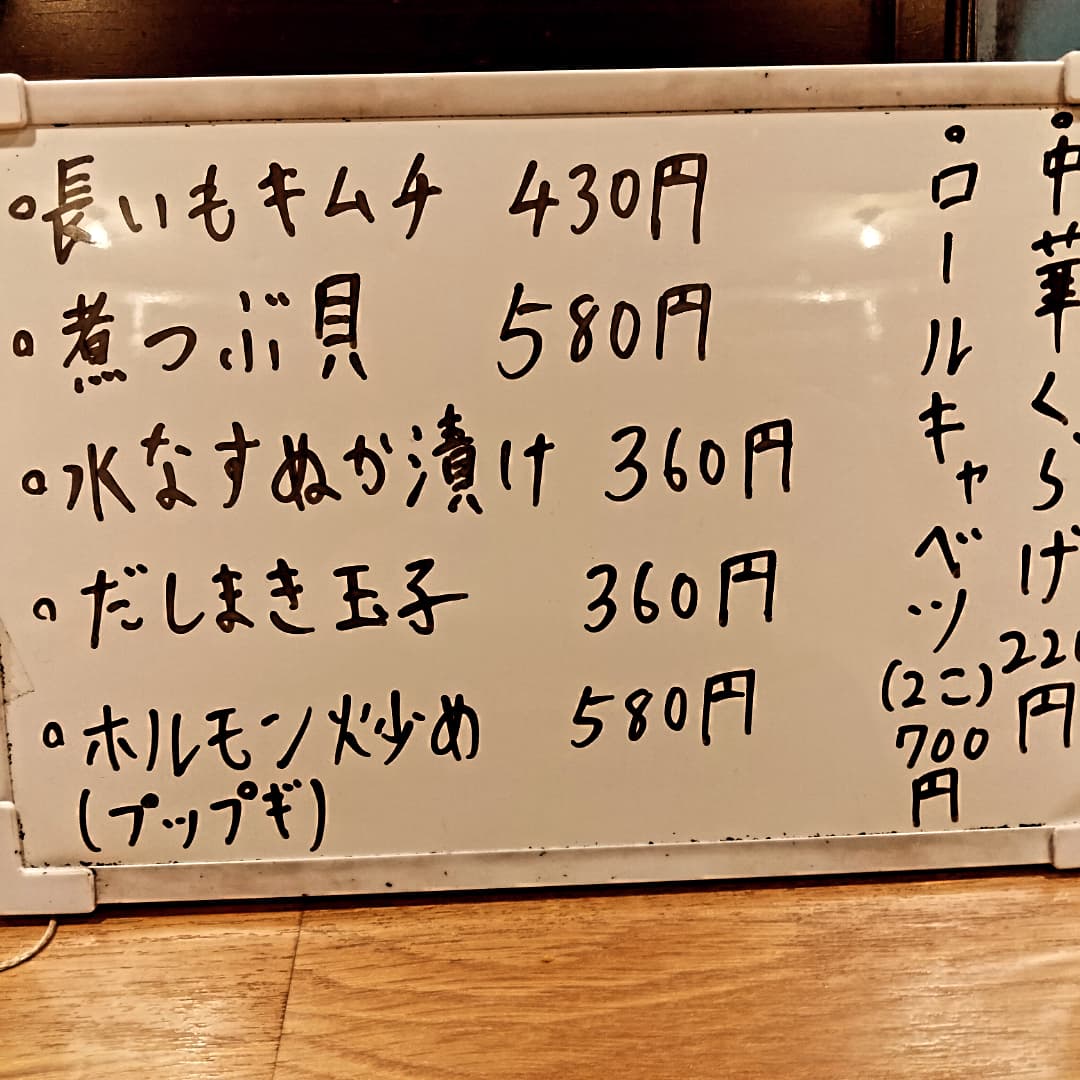 ・長いもキムチ 430円
・煮つぶ貝 580円
・水なすぬか漬け 360円
・だしまき玉子 360円
・ホルモン炒め 580円
(プップギ)
・中華くらげ
220
円
・ロールキャベツ
(2こ)
700
円